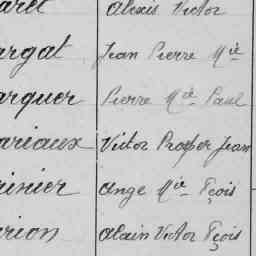 aret Alexis Victor
argat Jean Pierre Mie
arquer Pierre Mie Paul
ariaux Victor Prosper Jean
rinier Ange Mie Fçois
arion Alain Victor Fçois